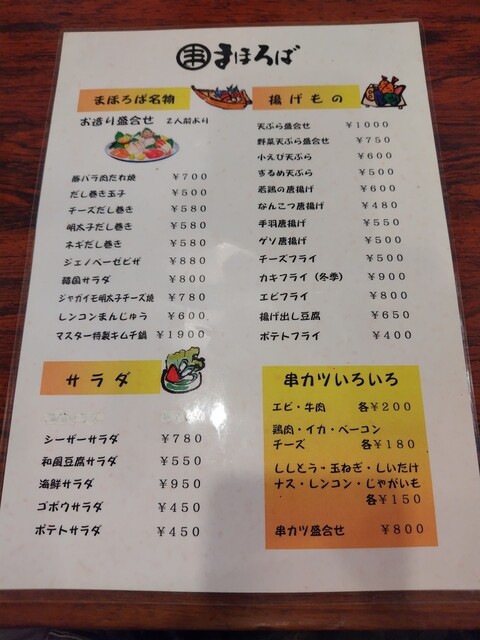 串 まほろば
まほろば名物
お造り盛合せ 2人前より
豚バラ肉たれ焼 ¥700
だし巻き玉子 ¥500
チーズだし巻き ¥580
明太子だし巻き ¥580
ネギだし巻き ¥580
ジェノベーゼピザ ¥880
韓国サラダ ¥800
ジャガイモ明太子チーズ焼 ¥780
レンコンまんじゅう ¥600
マスター特製キムチ鍋 ¥1900
サラダ
シーザーサラダ ¥780
和風豆腐サラダ ¥550
海鮮サラダ ¥950
ゴボウサラダ ¥450
ポテトサラダ ¥450
揚げもの
天ぷら盛合せ ¥1000
野菜天ぷら盛合せ ¥750
小えび天ぷら ¥600
するめ天ぷら ¥500
若鶏の唐揚げ ¥600
なんこつ唐揚げ ¥480
手羽唐揚げ ¥550
ゲソ唐揚げ ¥500
チーズフライ ¥500
カキフライ (冬季) ¥900
エビフライ ¥800
揚げ出し豆腐 ¥650
ポテトフライ ¥400
串カツいろいろ
エビ・牛肉 各¥200
鶏肉・イカ・ベーコン
チーズ 各¥180
ししとう・玉ねぎ・しいたけ
ナス・レンコン・じゃがいも
各¥150
串カツ盛合せ ¥800